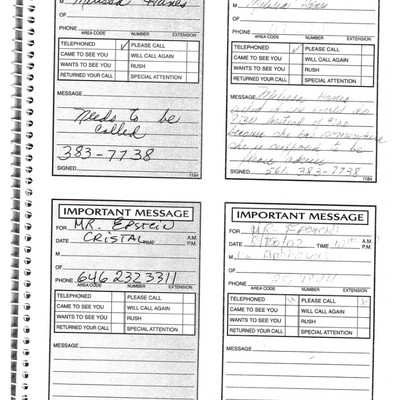 M Melissa Hanes
OF
PHONE
AREA CODE NUMBER EXTENSION
TELEPHONED ✓ PLEASE CALL
CAME TO SEE YOU WILL CALL AGAIN
WANTS TO SEE YOU RUSH
RETURNED YOUR CALL SPECIAL ATTENTION
MESSAGE
Needs to be
called
383-7738
SIGNED
1184
M Melissa
OF
PHONE
AREA CODE NUMBER EXTENSION
TELEPHONED PLEASE CALL
CAME TO SEE YOU WILL CALL AGAIN
WANTS TO SEE YOU RUSH
RETURNED YOUR CALL SPECIAL ATTENTION
MESSAGE Melissa Hanes
7:30 instead of
because she has somewhere
she is supposed to be
Please advise
SIGNED 561 383-7738
1184
IMPORTANT MESSAGE
FOR MR. EPSTEIN
DATE CRISTAL TIME A.M. P.M.
M
OF
PHONE 646 232 3311
AREA CODE NUMBER EXTENSION
TELEPHONED PLEASE CALL
CAME TO SEE YOU WILL CALL AGAIN
WANTS TO SEE YOU RUSH
RETURNED YOUR CALL SPECIAL ATTENTION
MESSAGE
IMPORTANT MESSAGE
FOR MR. EPSTEIN
DATE TIME A.M. P.M.
M
OF
PHONE
AREA CODE NUMBER EXTENSION
TELEPHONED PLEASE CALL
CAME TO SEE YOU WILL CALL AGAIN
WANTS TO SEE YOU RUSH
RETURNED YOUR CALL SPECIAL ATTENTION
MESSAGE